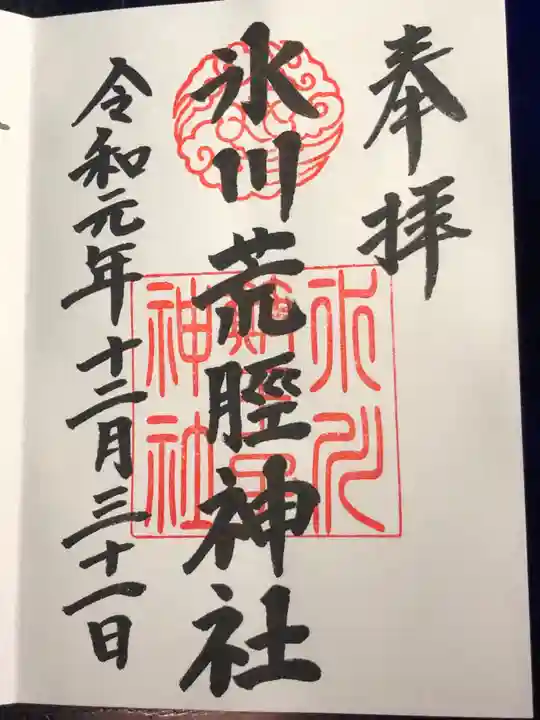 奉拝
氷川荒脛神社
令和元年十二月三十一日
氷川
神社